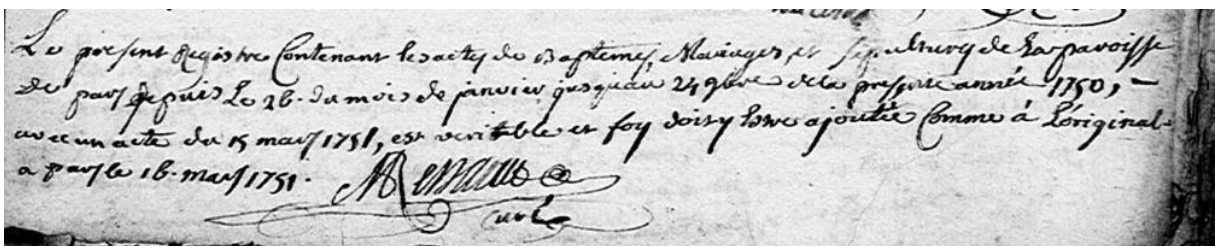 Le present Registre Contenant les actes de Baptemes, Mariages et sepultures de La paroisse
De pars depuis Le 26. du mois de janvier jusqu'au 24 9bre de la presente année 1750, -
avec un acte du 15 mars 1751, est veritable et foy doit y estre ajoutée Comme à L'original.
a pars le 16. mars 1751.
curé